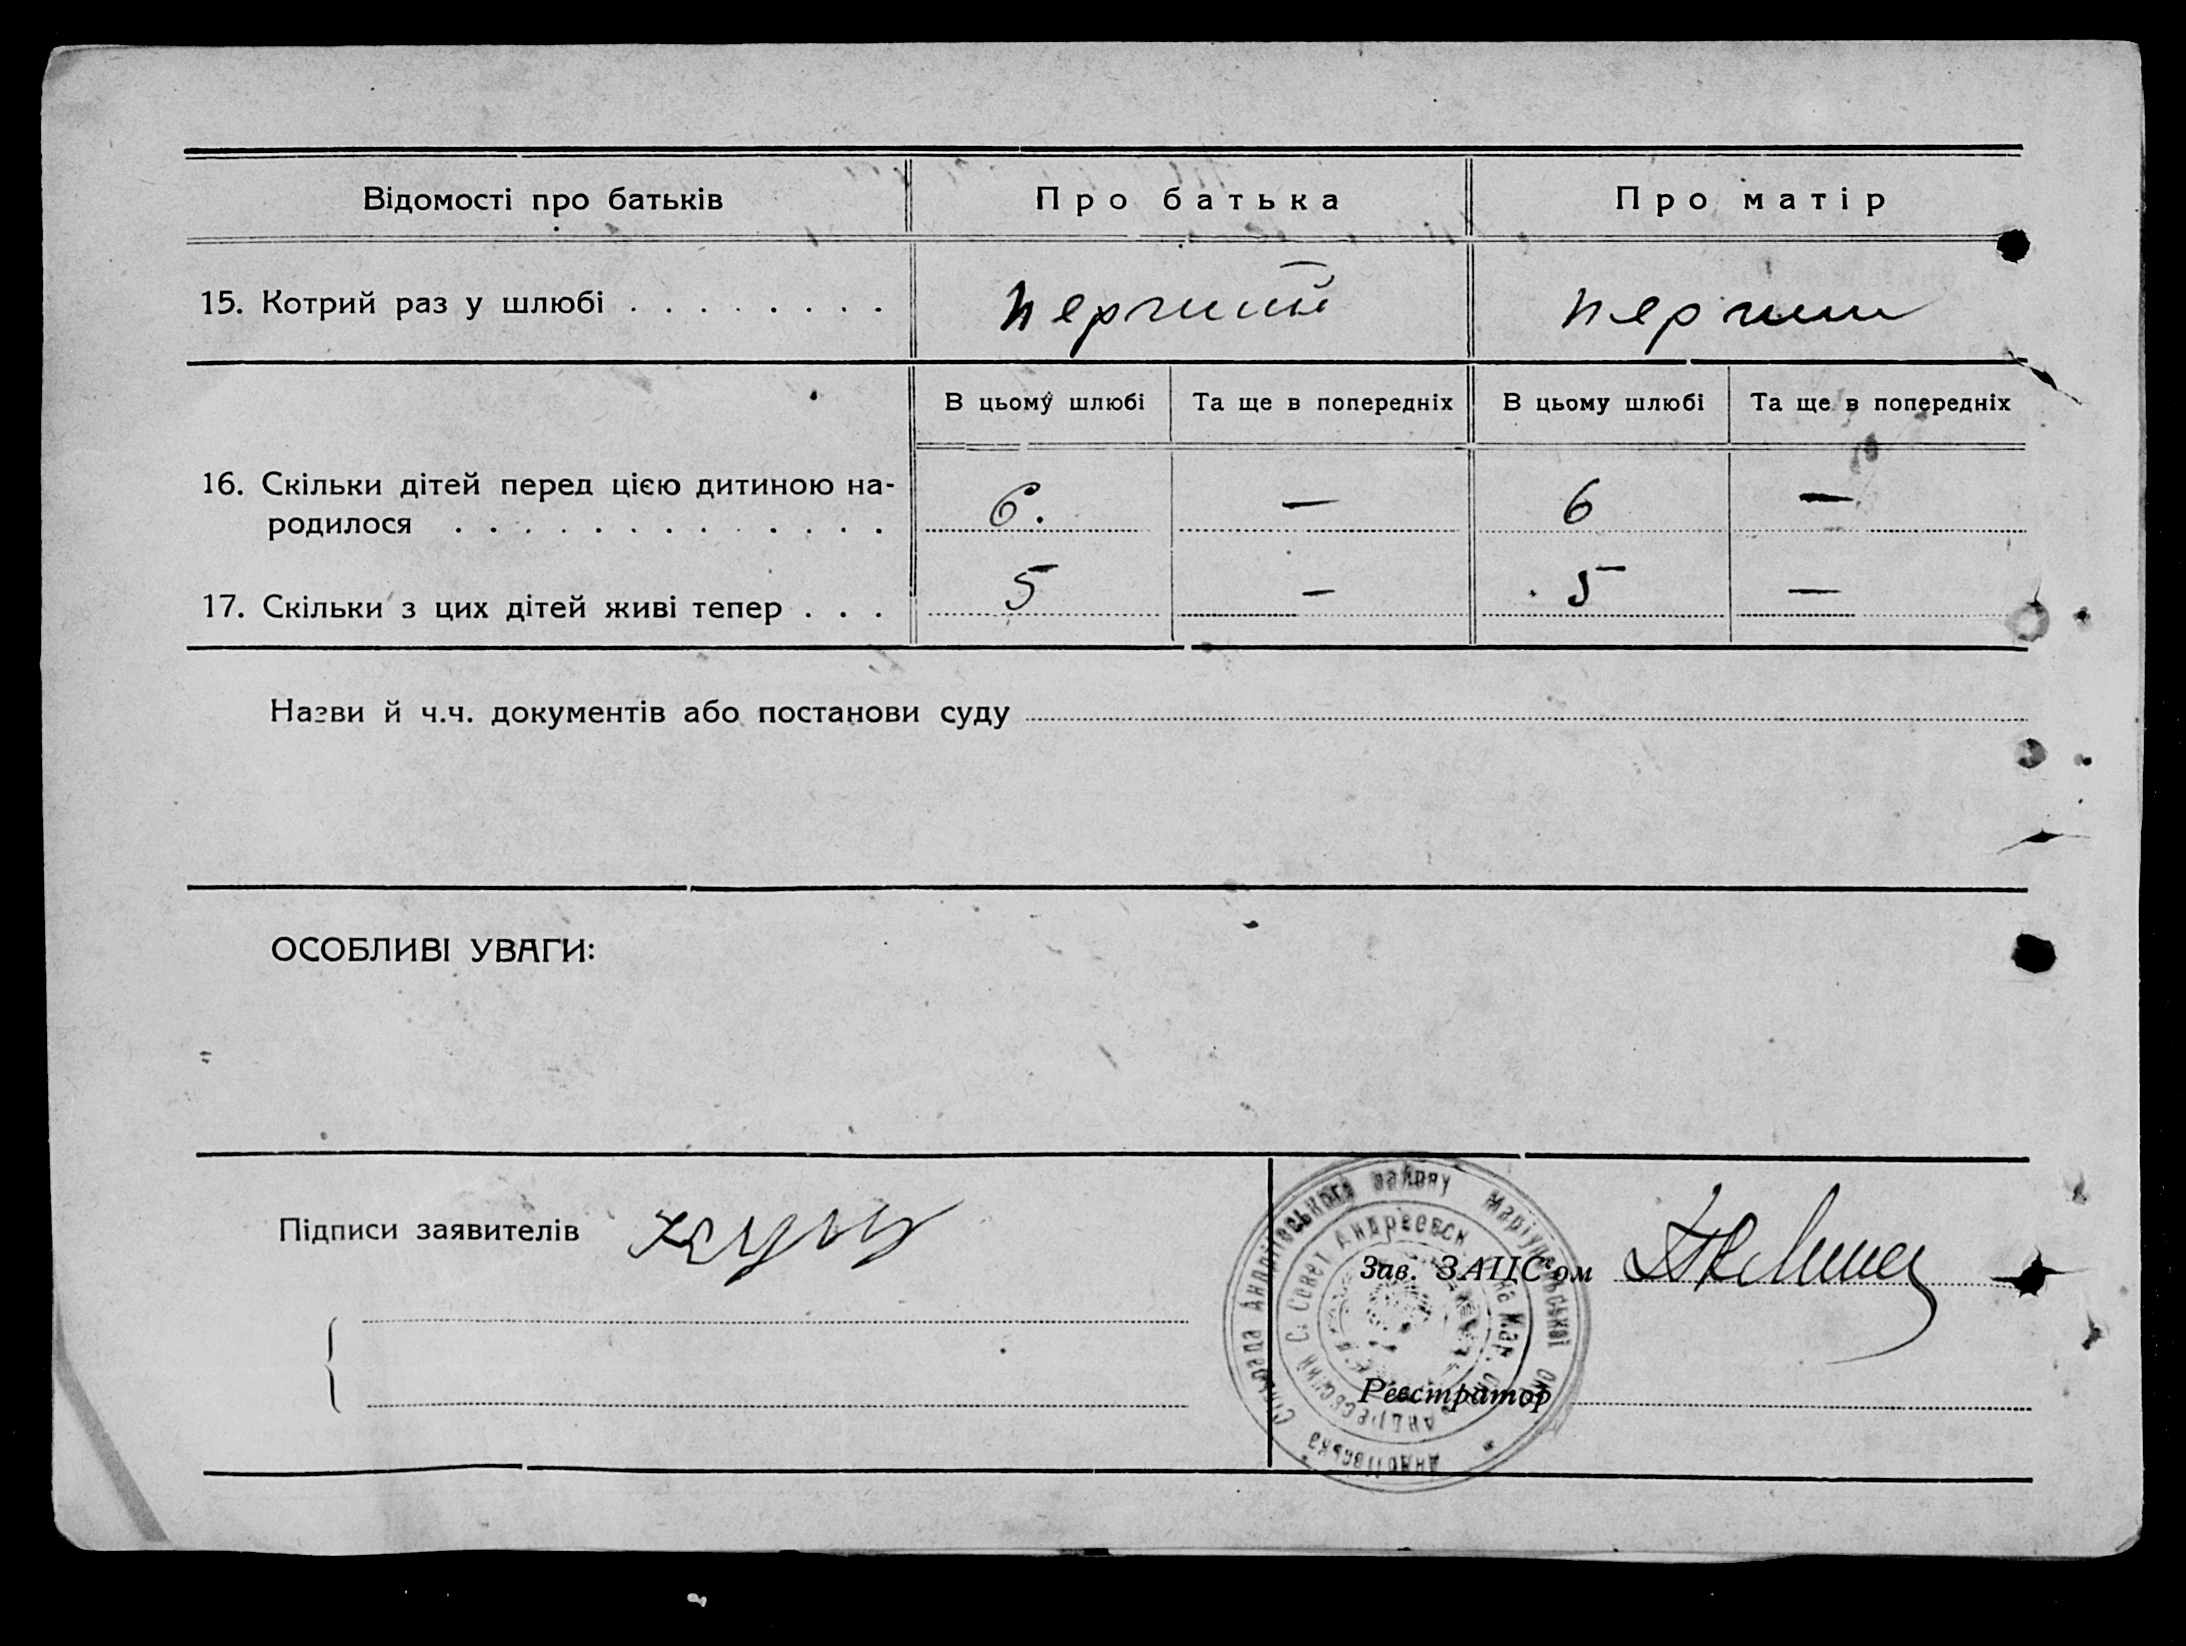 Відомості про батьків
Про батька
Про матір
15. Котрий раз у шлюбі . . . . . . . .
перший
перший
В цьому шлюбі
Та ще в попередніх
В цьому шлюбі
Та ще в попередніх
16. Скільки дітей перед цією дитиною на-
родилося . . . . . . . . . . . . .
6.
—
6
—
17. Скільки з цих дітей живі тепер . . .
5
—
5
—
Назви й ч.ч. документів або постанови суду
ОСОБЛИВІ УВАГИ:
Підписи заявителів
Зав. ЗАЦС'ом
Реєстратор
Андріївська Сільрада Андріївського району Маріупольської ок
Андреевский С. Совет Андреевск на Мар. ок